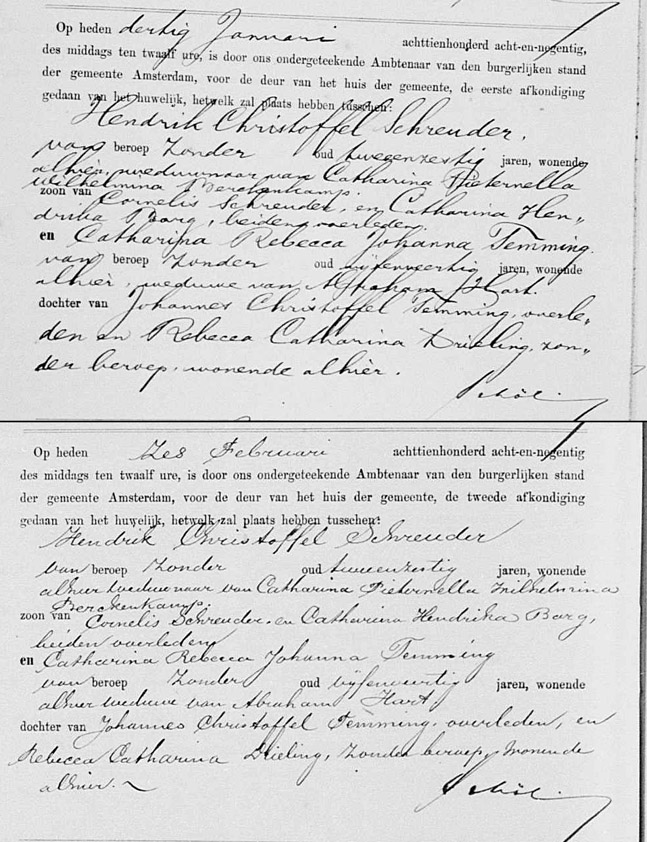 Op heden dertig Januari achttienhonderd acht-en-negentig,
des middags ten twaalf ure, is door ons ondergeteekende Ambtenaar van den burgerlijken stand
der gemeente Amsterdam, voor de deur van het huis der gemeente, de eerste afkondiging
gedaan van het huwelijk, hetwelk zal plaats hebben tusschen:
Hendrik Christoffel Schreuder,
van beroep zonder oud tweeenzestig jaren, wonende
alhier, weduwnaar van Catharina Pieternella
Wilhelmina Berckenkamp.
zoon van Cornelis Schreuder, en Catharina Hen„
drika Barg, beiden overleden.
en Catharina Rebecca Johanna Temming.
van beroep zonder oud vijfenveertig jaren, wonende
alhier, weduwe van Abraham Hart.
dochter van Johannes Christoffel Temming, overle„
den en Rebecca Catharina Drieling, zon„
der beroep, wonende alhier.
Op heden Zes Februari achttienhonderd acht-en-negentig
des middags ten twaalf ure, is door ons ondergeteekende Ambtenaar van den burgerlijken stand
der gemeente Amsterdam, voor de deur van het huis der gemeente, de tweede afkondiging
gedaan van het huwelijk, hetwelk zal plaats hebben tusschen:
Hendrik Christoffel Schreuder
van beroep zonder oud tweeenzestig jaren, wonende
alhier weduwnaar van Catharina Pieternella Wilhelmina
Berckenkamp.
zoon van Cornelis Schreuder, en Catharina Hendrika Barg,
beiden overleden
en Catharina Rebecca Johanna Temming
van beroep zonder oud vijfenveertig jaren, wonende
alhier weduwe van Abraham Hart,
dochter van Johannes Christoffel Temming, overleden, en
Rebecca Catharina Drieling, zonder beroep, wonende
alhier.